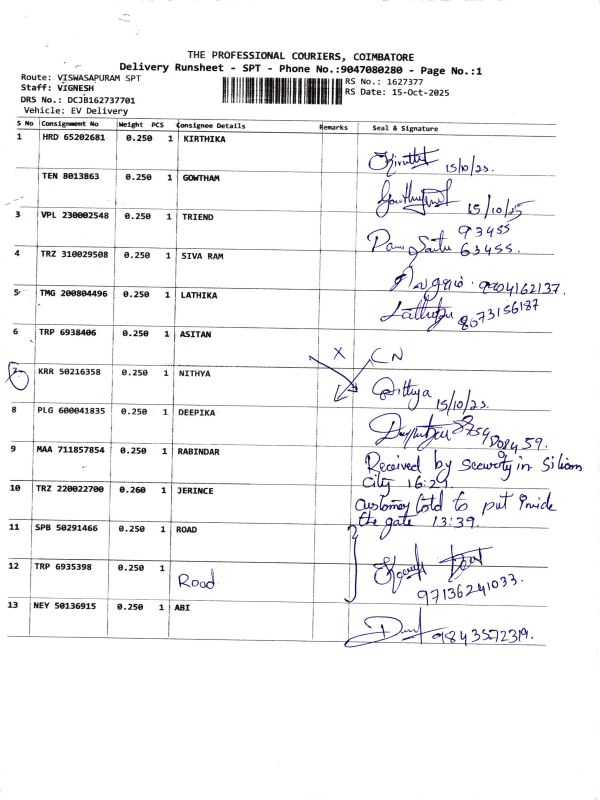 THE PROFESSIONAL COURIERS, COIMBATORE
Delivery Runsheet - SPT - Phone No.:9047080280 - Page No.:1
Route: VISWASAPURAM SPT
RS No.: 1627377
Staff: VIGNESH
RS Date: 15-Oct-2025
DRS No.: DCJB162737701
Vehicle: EV Delivery
S No Consignment No Weight PCS Consignee Details Remarks Seal & Signature
1 HRD 65202681 0.250 1 KIRTHIKA
15/10/25.
TEN 8013863 0.250 1 GOWTHAM
15/10/25
3 VPL 230002548 0.250 1 TRIEND
93455
63455.
4 TRZ 310029508 0.250 1 SIVA RAM
9204162137.
5 TMG 200804496 0.250 1 LATHIKA
8073156187
6 TRP 6938406 0.250 1 ASITAN
X CN
7 KRR 50216358 0.250 1 NITHYA
Nithya
15/10/25.
8 PLG 600041835 0.250 1 DEEPIKA
9 MAA 711857854 0.250 1 RABINDAR
Received by security in Silicon
City 16:29.
10 TRZ 220022700 0.260 1 JERINCE
customer told to put inside
the gate 13:39.
11 SPB 50291466 0.250 1 ROAD
12 TRP 6935398 0.250 1
Road
97136241033.
13 NEY 50136915 0.250 1 ABI
9843572319.